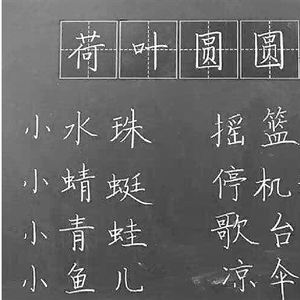 荷叶圆圆
小水珠 摇篮
小蜻蜓 停机
小青蛙 歌台
小鱼儿 凉伞